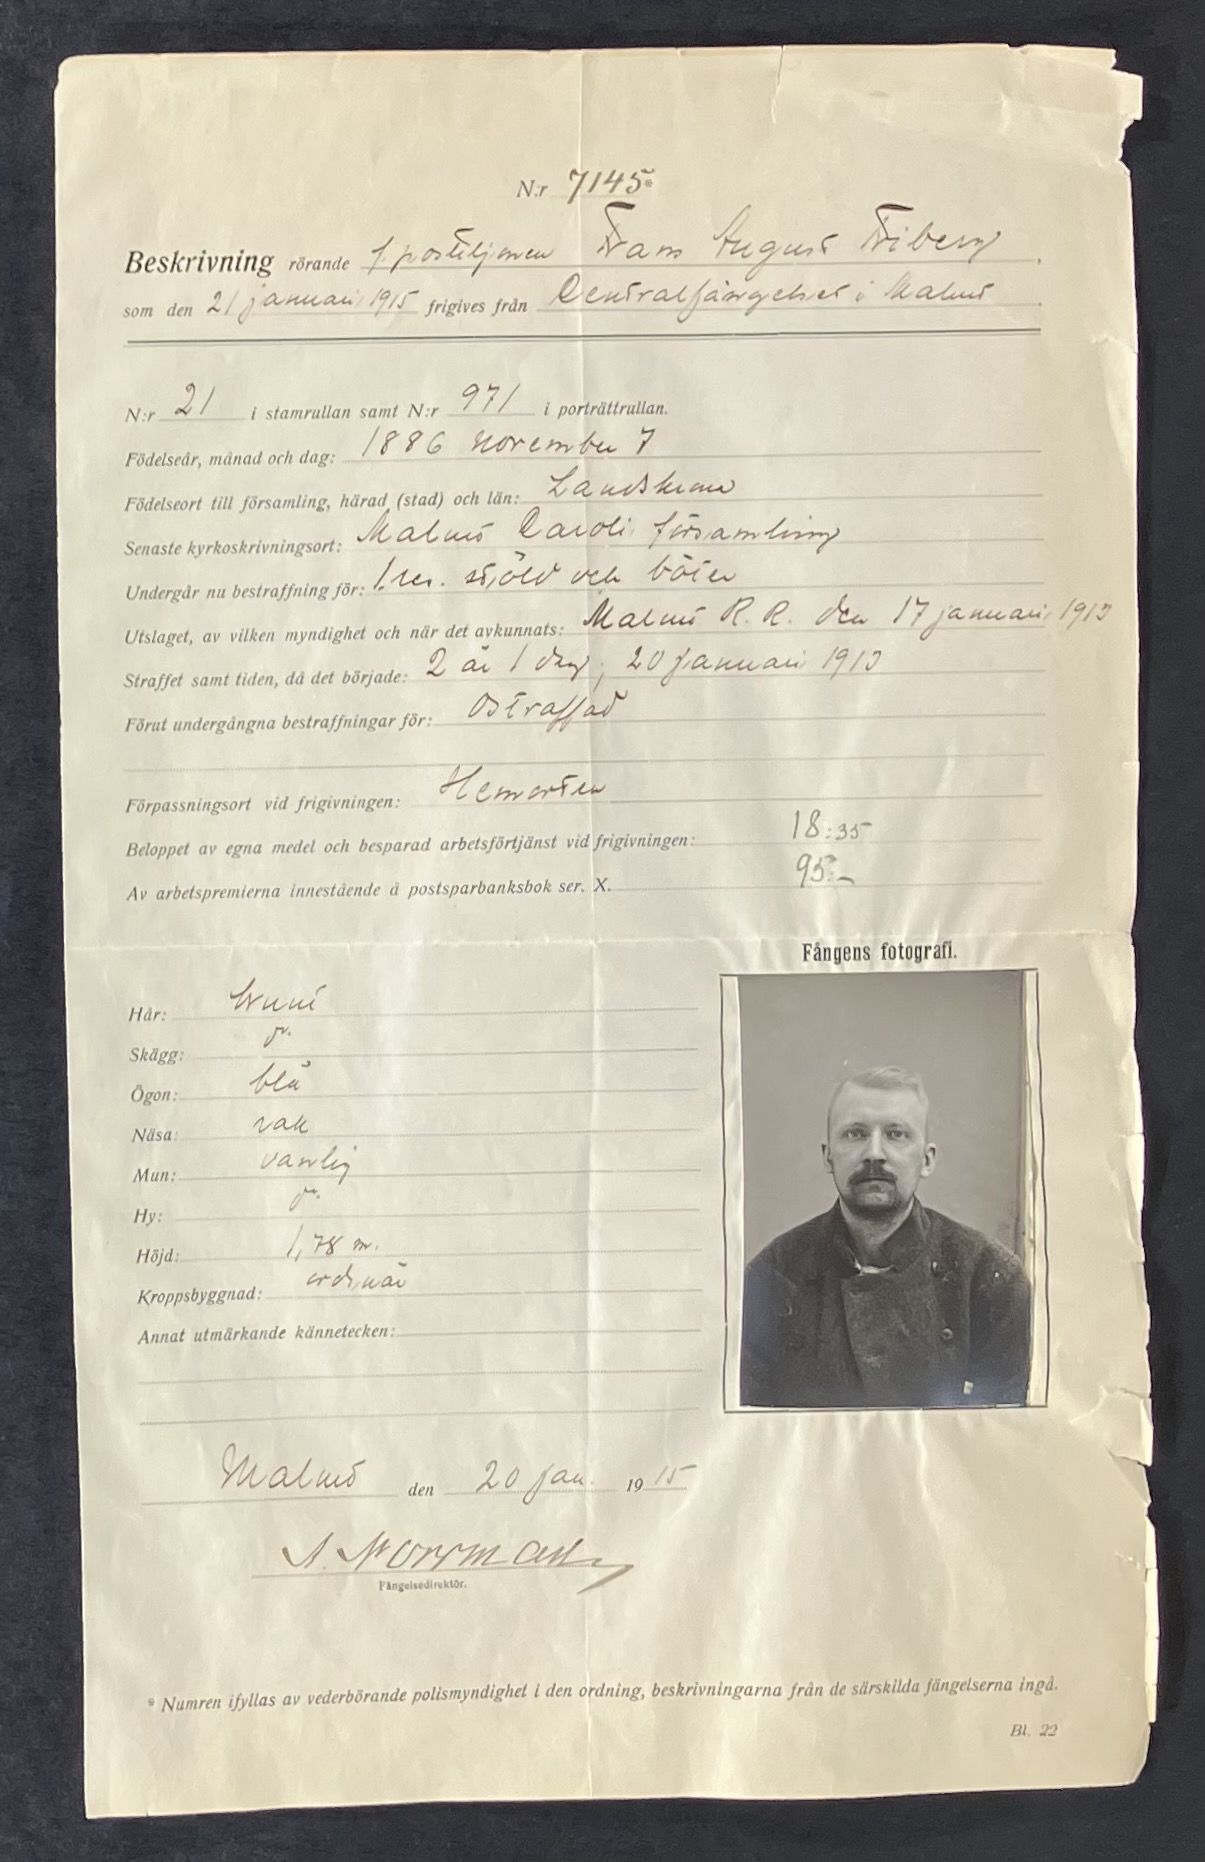 N:r 7145*
Beskrivning rörande f. postiljonen Frans August Friberg.
som den 21 januari 1915 frigives från Centralfängelset i Malmö.
N:r 21 i stamrullan samt N:r 971 i porträttrullan.
Födelseår, månad och dag: 1886 november 7
Födelseort till församling, härad (stad) och län: Landskrona
Senaste kyrkoskrivningsort: Malmö Caroli församling
Undergår nu bestraffning för: 1 res. stöld och böter
Utslaget, av vilken myndighet och när det avkunnats: Malmö R. R. den 17 januari 1913
Straffet samt tiden, då det började: 2 år 1 dag; 20 januari 1913
Förut undergångna bestraffningar för: Ostraffad
Förpassningsort vid frigivningen: Hemorten
Beloppet av egna medel och besparad arbetsförtjänst vid frigivningen: 18:35
Av arbetspremierna innestående å postsparbanksbok ser. X. 95:-
Fångens fotografi.
Hår: brunt
Skägg: d:o
Ögon: blå
Näsa: rak
Mun: vanlig
Hy: d:o
Höjd: 1,78 m.
Kroppsbyggnad: ordinär
Annat utmärkande kännetecken:
Malmö den 20 jan. 1915
A. Norrman
Fängelsedirektör.
* Numren ifyllas av vederbörande polismyndighet i den ordning, beskrivningarna från de särskilda fängelserna ingå.
Bl. 22